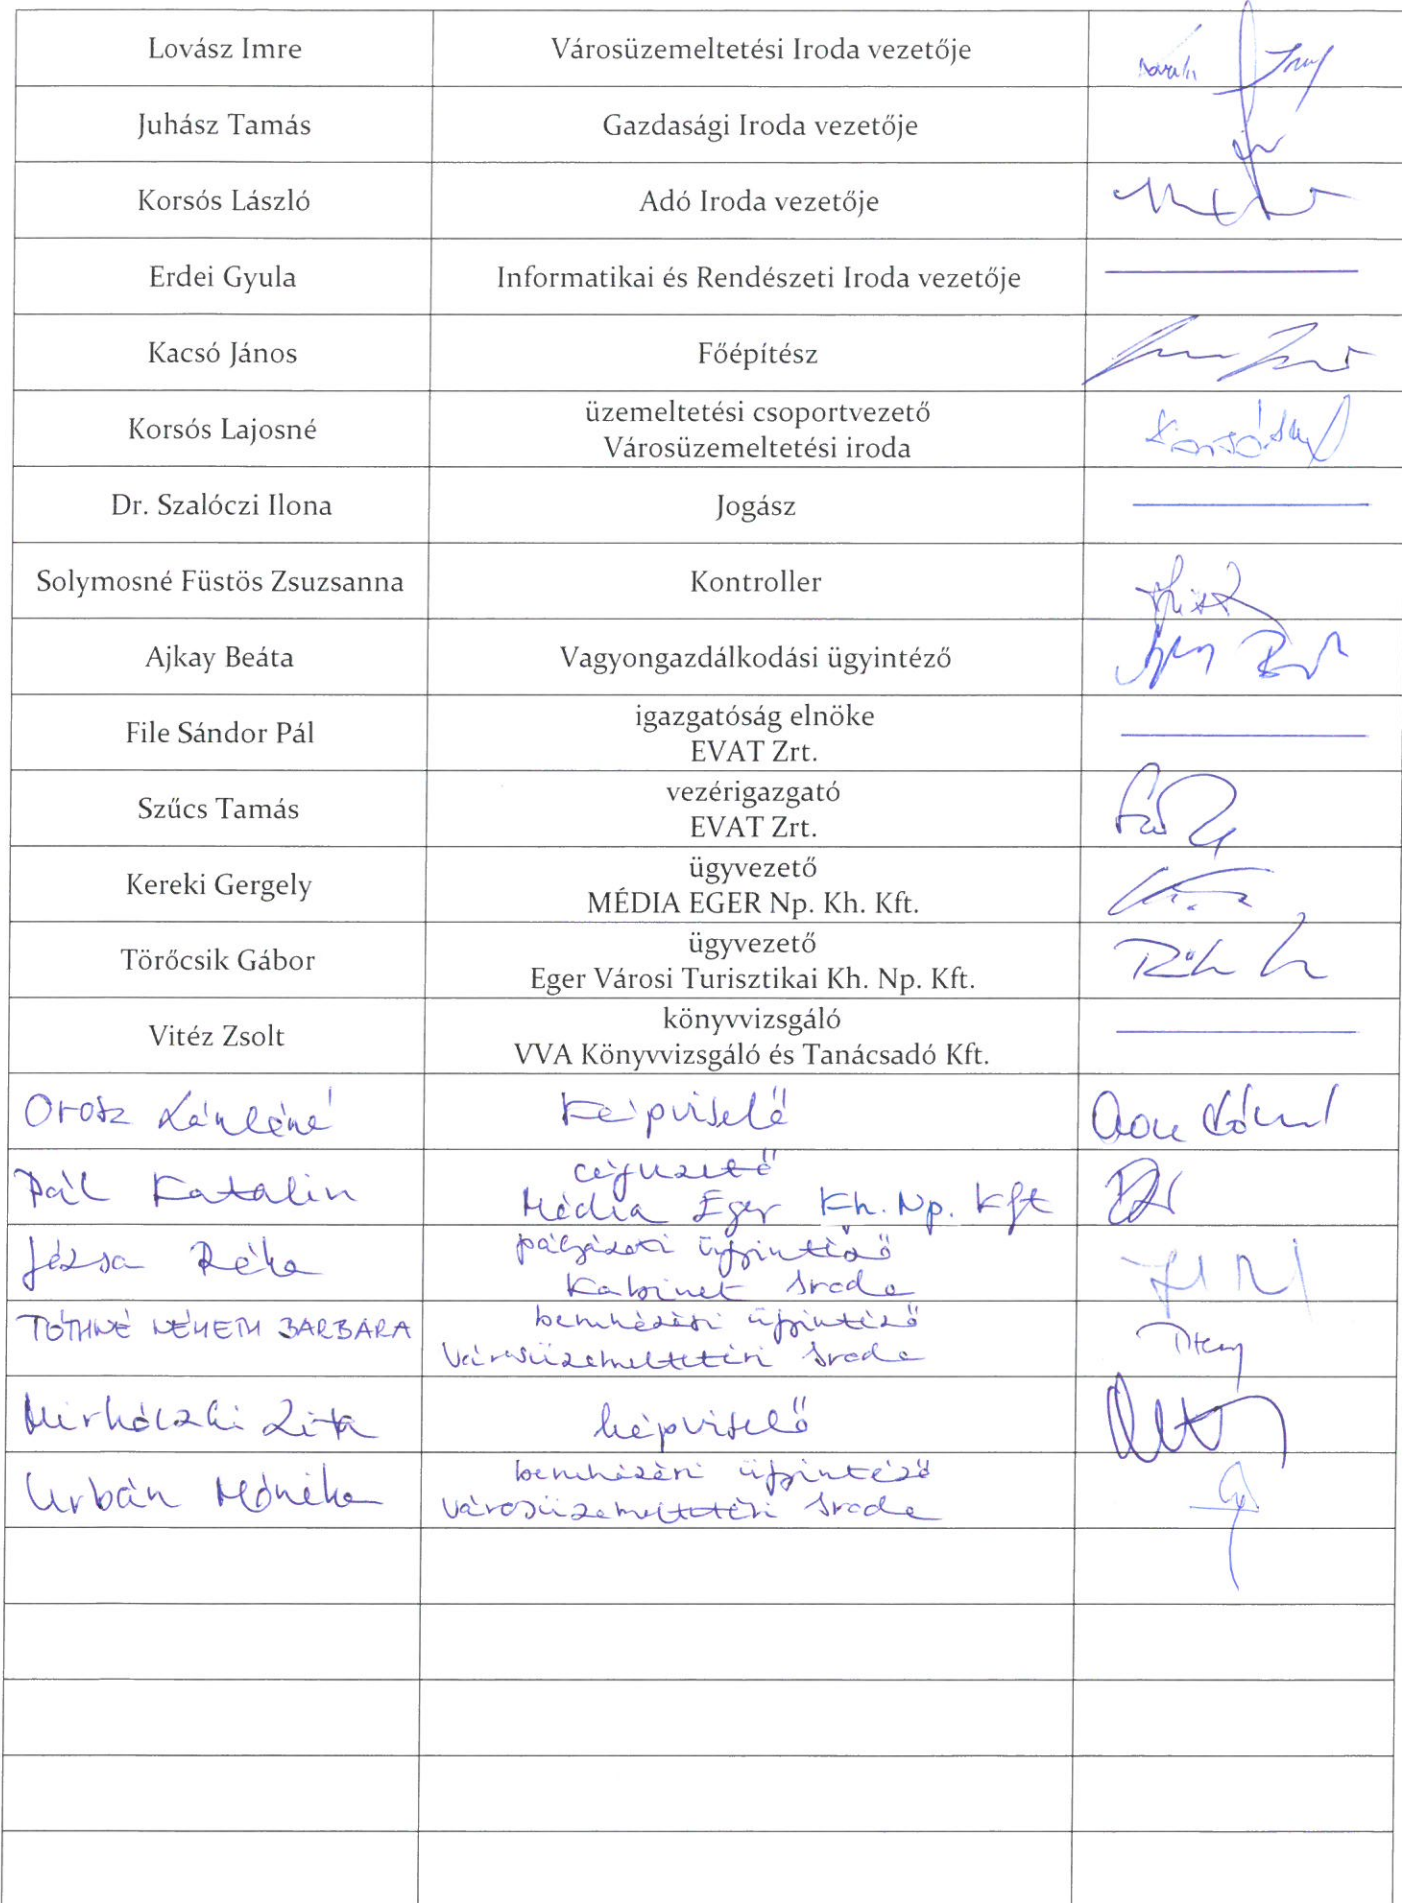 Lovász Imre
Városüzemeltetési Iroda vezetője
Juhász Tamás
Gazdasági Iroda vezetője
Korsós László
Adó Iroda vezetője
Erdei Gyula
Informatikai és Rendészeti Iroda vezetője
Kacsó János
Főépítész
Korsós Lajosné
üzemeltetési csoportvezető
Városüzemeltetési iroda
Dr. Szalóczi Ilona
Jogász
Solymosné Füstös Zsuzsanna
Kontroller
Ajkay Beáta
Vagyongazdálkodási ügyintéző
File Sándor Pál
igazgatóság elnöke
EVAT Zrt.
Szűcs Tamás
vezérigazgató
EVAT Zrt.
Kereki Gergely
ügyvezető
MÉDIA EGER Np. Kh. Kft.
Törőcsik Gábor
ügyvezető
Eger Városi Turisztikai Kh. Np. Kft.
Vitéz Zsolt
könyvvizsgáló
VVA Könyvvizsgáló és Tanácsadó Kft.
Orosz
képviselő
Pál Katalin
cégvezető
Média Eger Kh. Np. Kft
Józsa Réka
pályázati ügyintéző
Kabinet Iroda
TÓTHNÉ NÉMETH BARBARA
beruházási ügyintéző
Városüzemeltetési Iroda
Mirkóczki Zita
képviselő
Urbán Mónika
beruházási ügyintéző
Városüzemeltetési Iroda